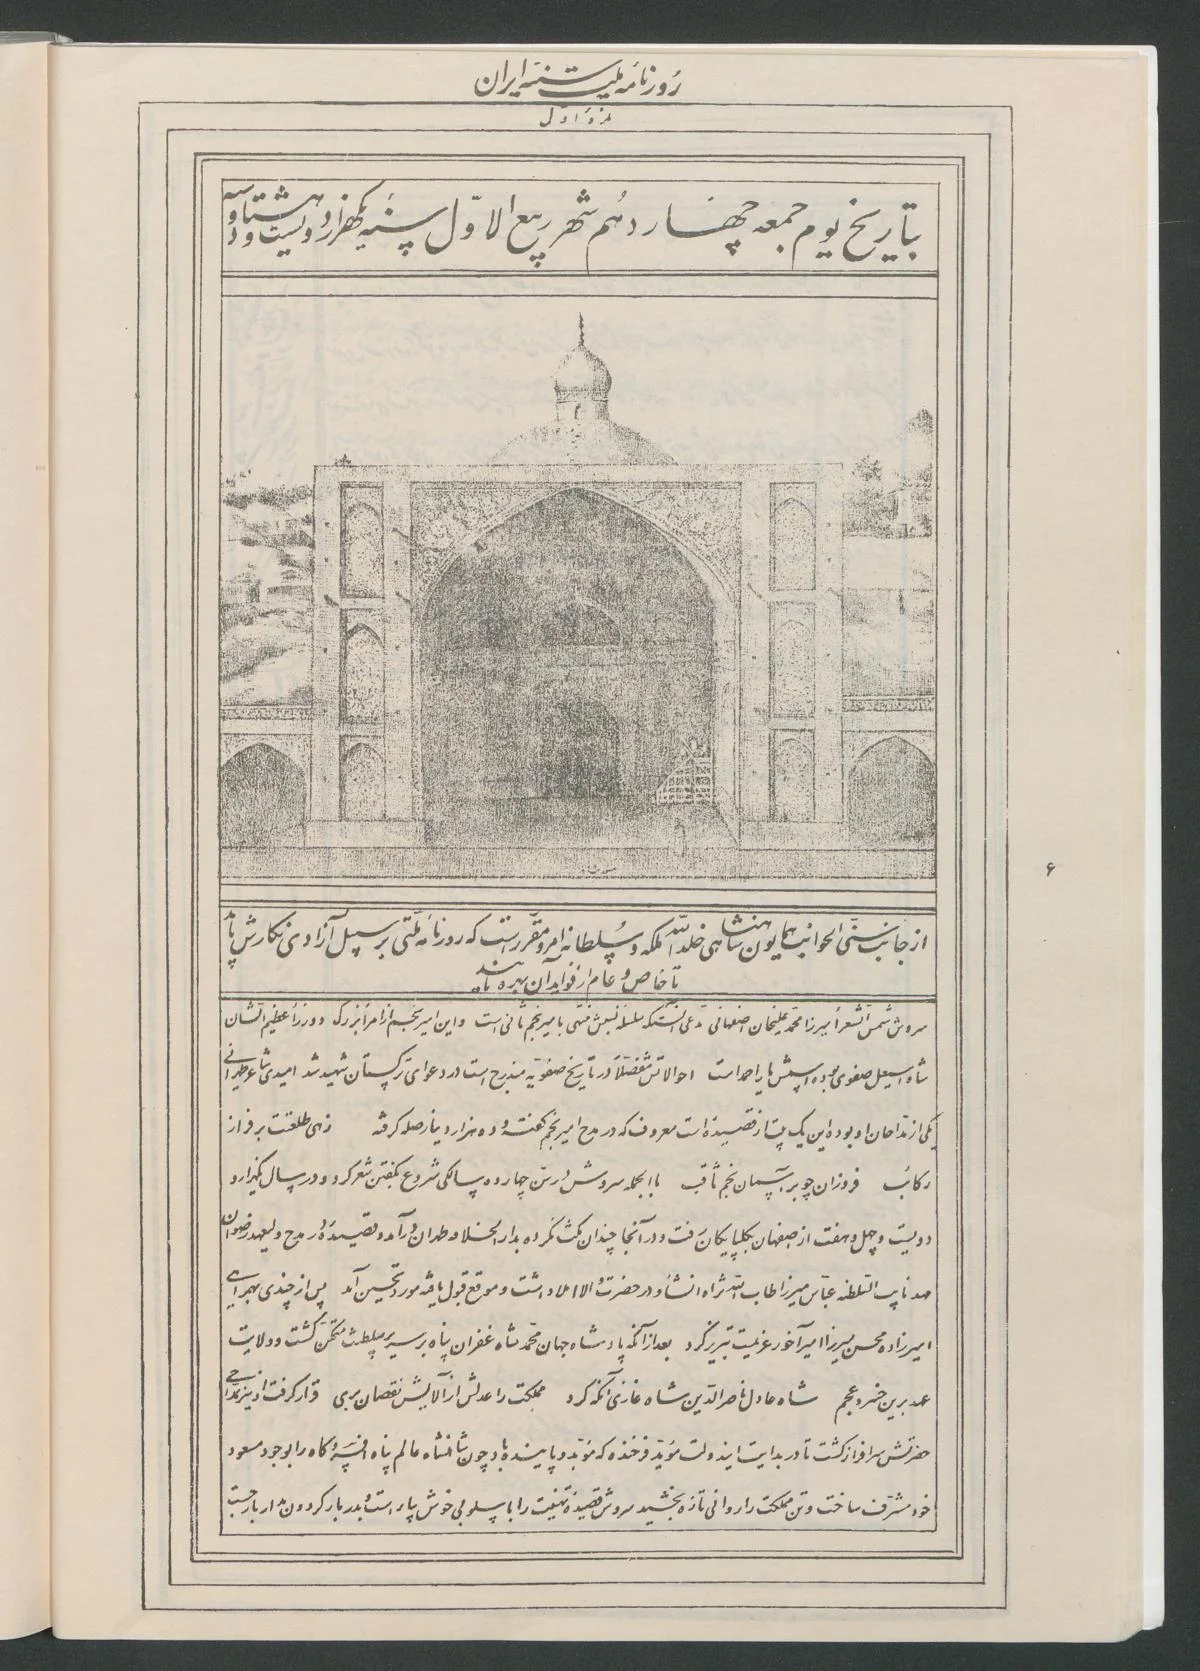 روزنامه ملت سنیه ایران
نمره اول
بتاریخ یوم جمعه چهاردهم شهر ربیع الاول سنه یکهزار و دویست و هشتاد و سه
۶
از جانب سنی الجوانب همایون شاهنشاهی خلد الله ملکه و سلطانه امر و مقرر است که روزنامه ملتی بر سبیل آزادی نگارش یابد
تا خاص و عام از فواید آن بهره یابند
سروش شمس الشعرا میرزا محمد علیخان اصفهانی مدعی آنست که سلسله نسبش منتهی بامیر نجم ثانی است و این امیر نجم از امراء بزرگ و وزراء عظیم الشان
شاه اسمعیل صفوی بوده اسمش یار احمد است احوالاتش مفصلا در تاریخ صفویه مندرج است در دعوای ترکستان شهید شد امیدی شاعر طهرانی
یکی از مداحان او بوده این یک بیت از قصیده است معروف که در مدح امیر نجم گفته و ده هزار دینار صله گرفته زهی طلعتت بر فراز
رکائب فروزان چو بر آسمان نجم ثاقب باالجمله سروش در سن چهارده سالگی شروع بگفتن شعر کرد و در سال یکهزار و
دویست و چهل و هفت از اصفهان بگلپایگان رفت و در آنجا چندان مکث نکرده بدار الخلافه طهران درآمد و قصیده در مدح ولیعهد رضوان
مهد نایب السلطنه عباس میرزا طاب الله ثراه انشاء و در حضرت والا املا داشت و موقع قبول یافته مورد تحسین آمد پس از چندی بهمراهی
امیرزاده محسن میرزا امیرآخور عزیمت تبریز کرد بعد از آنکه پادشاه جهان محمد شاه غفران پناه بر سریر سلطنت متمکن گشت و ولایت
عهد برین خسرو عجم شاه عادل ناصر الدین شاه غازی آنکه کرد مملکت را عدلش از آلایش نقصان بری قرار گرفت او نیز بمداحی
حضرتش سرافراز گشت تا در بدایت ایندولت مؤید فرخنده که مؤبد و پاینده باد چون شاهنشاه عالم پناه افسر و گاه را بوجود مسعود
خود مشرف ساخت و تن مملکت را روانی تازه بخشید سروش قصیده تهنیت را با سلوبی خوش بیاراست و بدربار گردون مدار بار جست